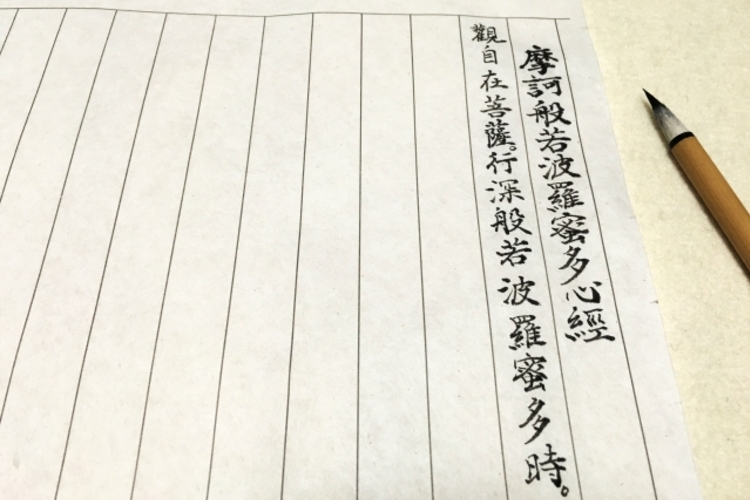 摩訶般若波羅蜜多心經
觀自在菩薩。行深般若波羅蜜多時。